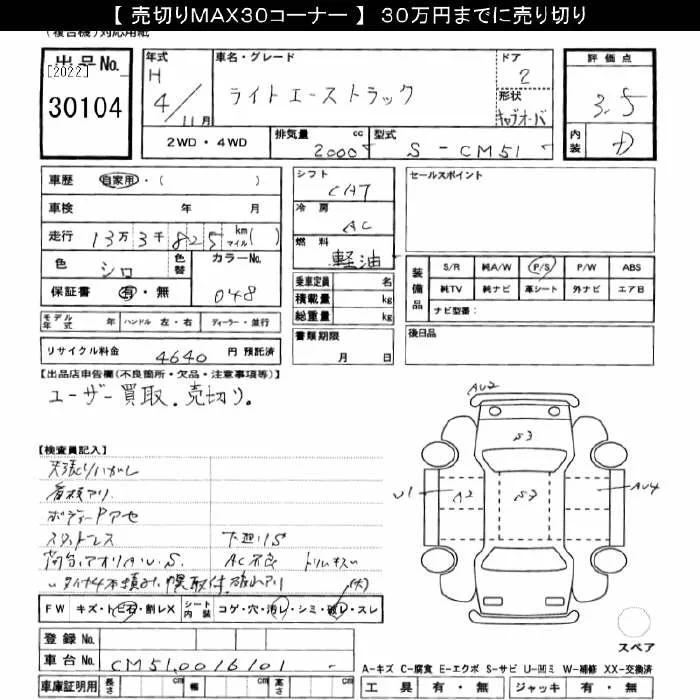 【 売切りMAX30コーナー 】 30万円までに売り切り
(複合機)対応用紙
出品No. [2022]
30104
年式 H 4/11月
車名・グレード
ライトエーストラック
ドア 2
形状 キャブオーバ
評価点 3.5
内装 D
2WD・4WD
排気量 cc 2000
型式 S-CM51
車歴 自家用・( )
車検 年 月
走行 13万3千825 km マイル( )
色 シロ
色替
カラーNo. 048
保証書 有・無
モデル年式 年 ハンドル 左・右 ディーラー・並行
リサイクル料金 4640 円 預託済
シフト CA7
冷房 AC
燃料 軽油
乗車定員 名
積載量 kg
総重量 kg
書類期限
月 日
セールスポイント
装備品
S/R 純A/W P/S P/W ABS
純TV 純ナビ 革シート 外ナビ エアB
ナビ型番:
後日品
【出品店申告欄(不良箇所・欠品・注意事項等)】
ユーザー買取.売切り.
【検査員記入】
天張りハガレ
看板アリ.
ボディーPアセ
スタッドレス 下廻りS
荷台.アオリAU.S. AC不良 トリムキズ
タイヤ4本積み.幌取付
(大)
FW キズ・トビ石・割レX シート内装 コゲ・穴・汚レ・シミ・破レ・スレ
登録No.
車台No. CM51.0016101 -
車庫証明用 長さ cm 幅 cm 高さ cm
AU2
S3
U1
A2
S3
AU4
スペア
A-キズ C-腐食 E-エクボ S-サビ U-凹ミ W-補修 XX-交換済
工具 有・無 ジャッキ 有・無